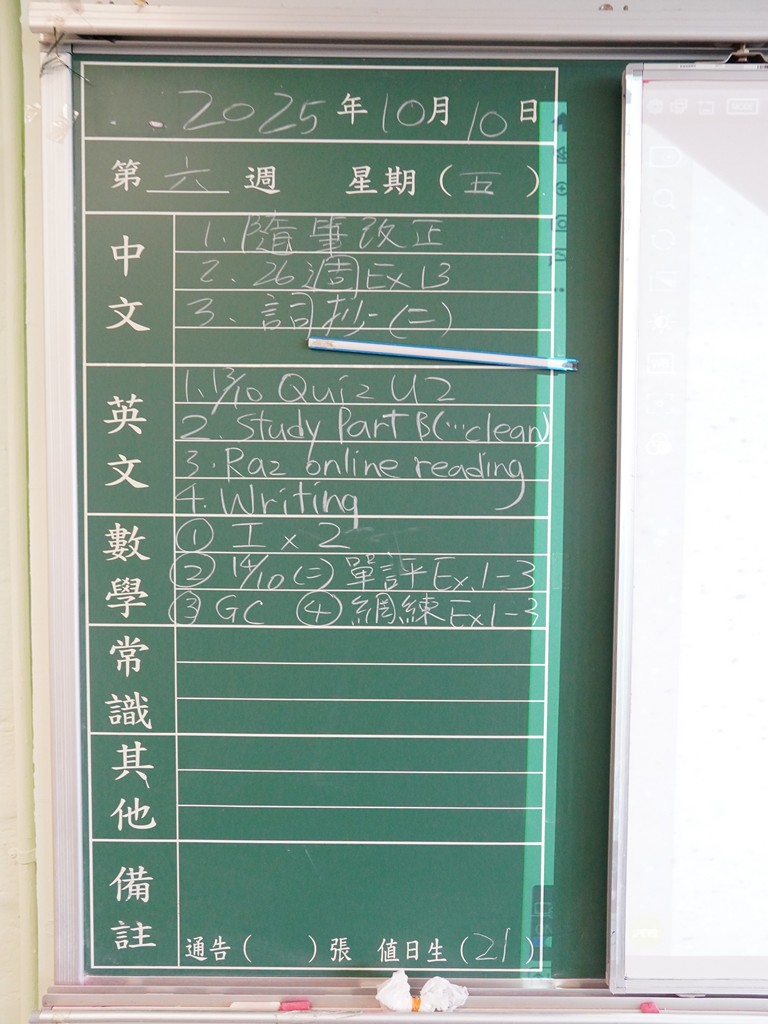 2025年10月10日
第六週 星期(五)
中文
1. 隨筆改正
2. 26週Ex13
3. 詞抄(二)
英文
1. 13/10 Quiz U2
2. Study Part B(…clean)
3. Raz online reading
4. Writing
數學
① I x 2
② 14/10(二) 單評 Ex.1-3
③ GC ④ 網練Ex1-3
常識
其他
備註
通告( )張 值日生(21)